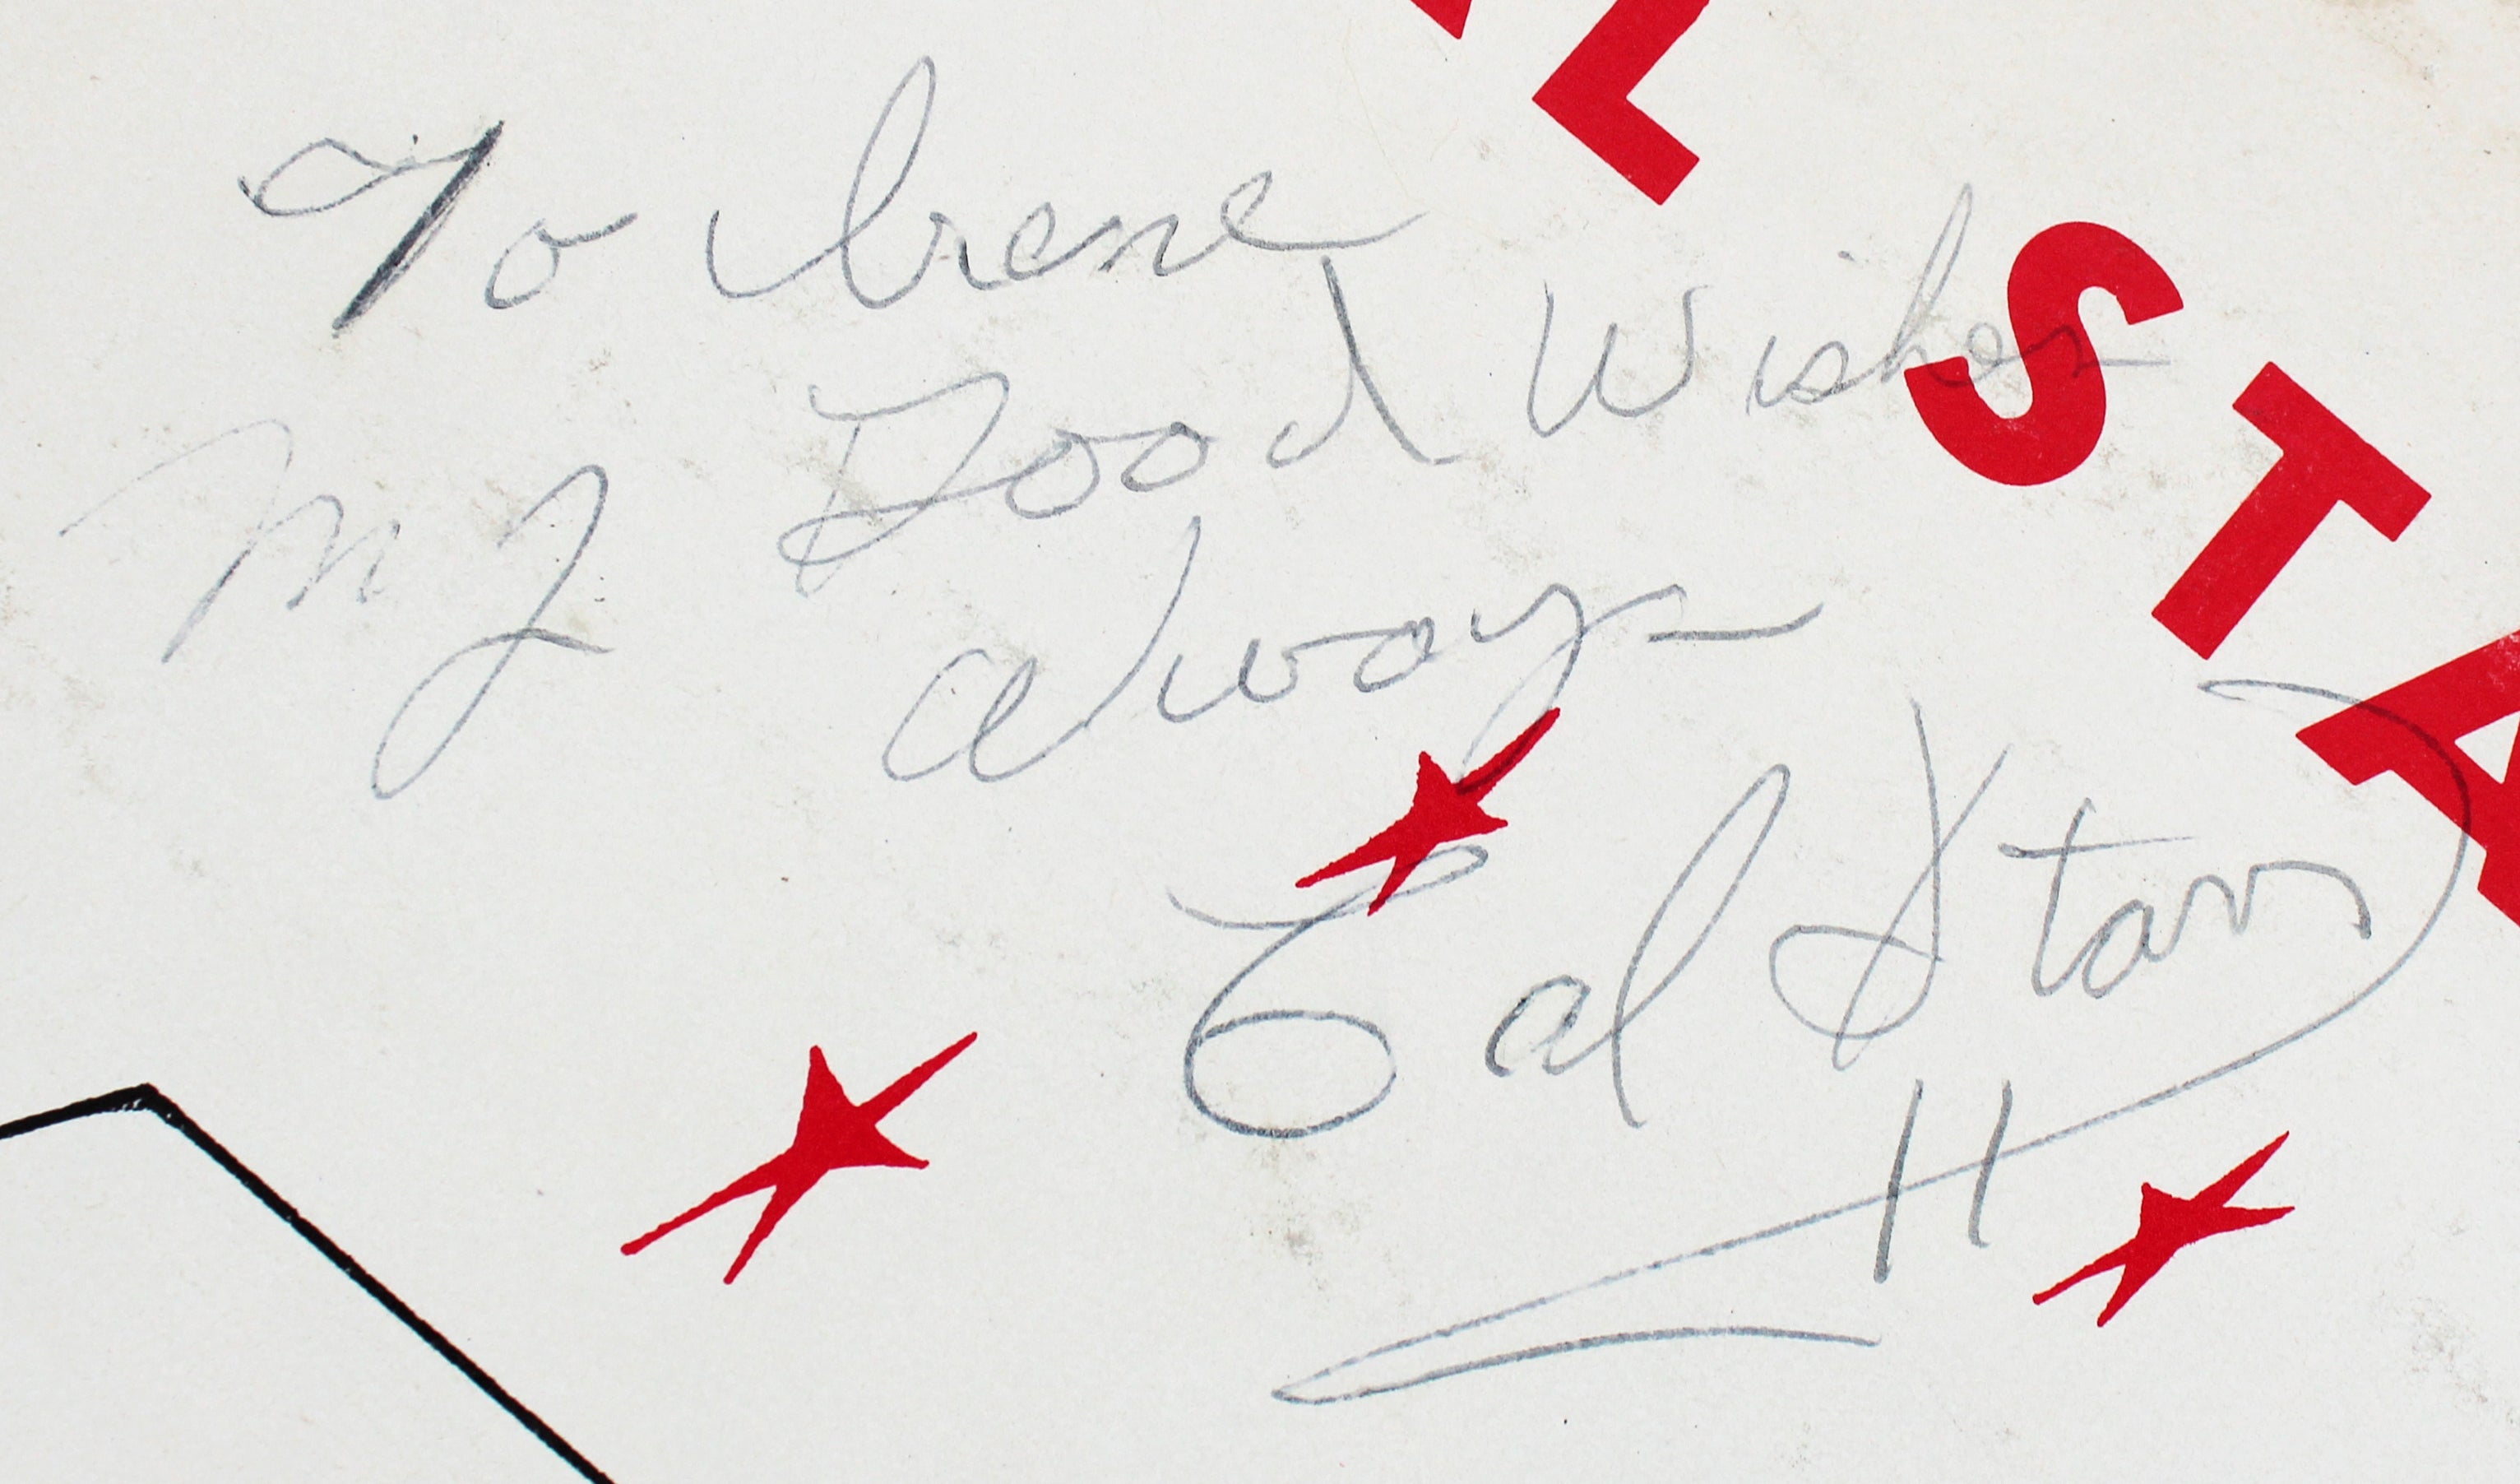 To Irene
My Good Wishes
always
Cal Starr
L STA